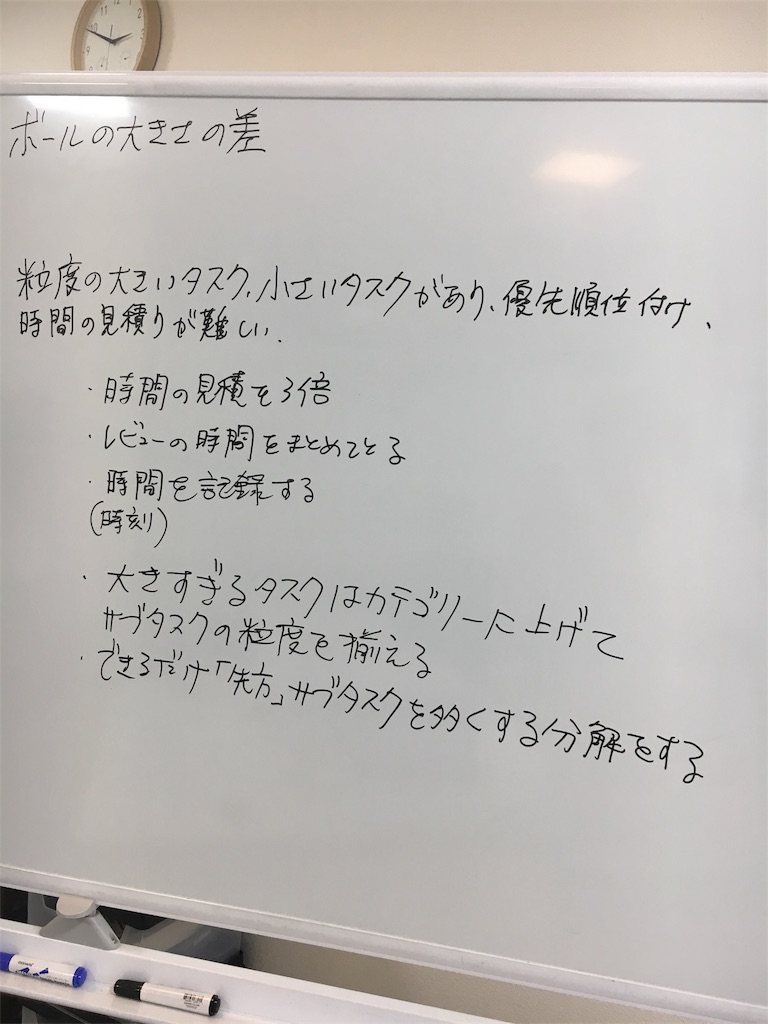 ボールの大きさの差
粒度の大きいタスク、小さいタスクがあり、優先順位付け、
時間の見積りが難しい.
・時間の見積を3倍
・レビューの時間をまとめてとる
・時間を記録する
(時刻)
・大きすぎるタスクはカテゴリーに上げて
サブタスクの粒度を揃える
・できるだけ「先方」サブタスクを多くする分解をする